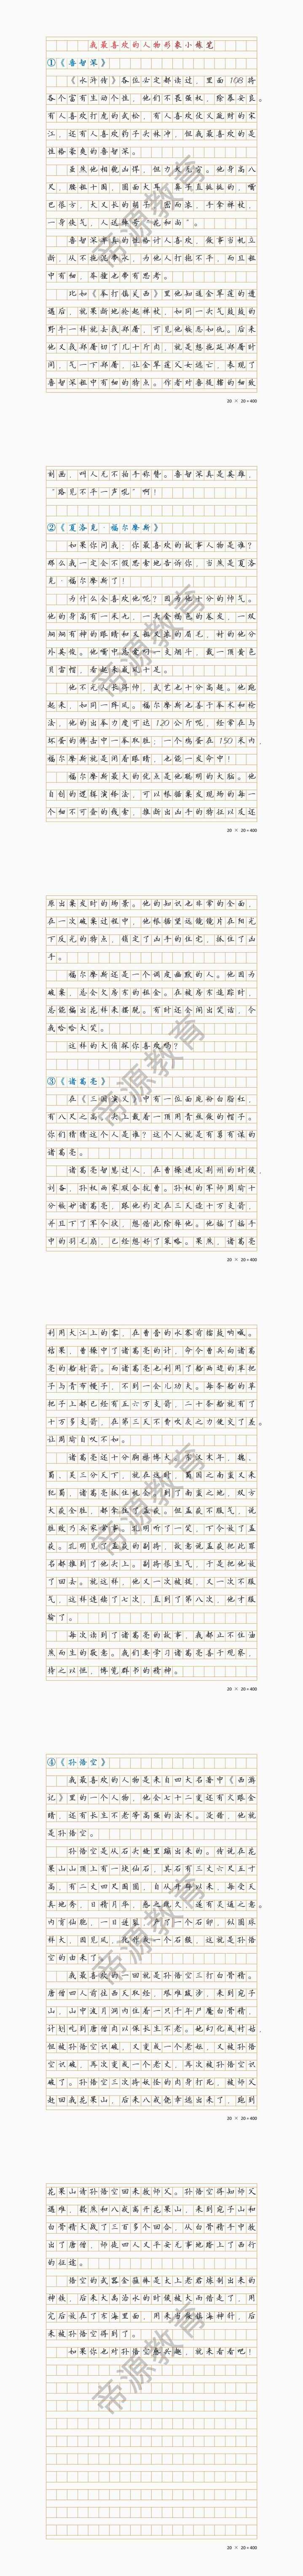 我最喜欢的人物形象小练笔
①《鲁智深》
《水浒传》各位必定都读过，里面108将
各个富有生动个性，他们不畏强权，除暴安良。
有人喜欢打虎的武松，有人喜欢使义疏财的宋
江，还有人喜欢豹子头林冲，但我最喜欢的是
性格豪爽的鲁智深。
虽然他相貌凶悍，但力大无穷。他身高八
尺，腰粗十围，圆面大耳，鼻子直挺挺的，嘴
巴很方，大又长的胡子，圆而浓，手拿禅杖，
一身侠气，人送绰号“花和尚”。
鲁智深率真的性格讨人喜欢，做事当机立
断，从不拖泥带水，为他人打抱不平，而且粗
中有细，举握也带有思考。
比如《拳打镇关西》里他知道金翠莲的遭
遇后，就果断地抡起禅杖，如同一头气鼓鼓的
野牛一样就去找郑屠，可见他嫉恶如仇。后来
他又找郑屠切了几十斤肉，就是想拖延郑屠时
间，气一下郑屠，让金翠莲父女逃亡，表现了
鲁智深粗中有细的特点。作者对鲁提辖的细致
20 × 20=400
刻画，叫人无不拍手称赞。鲁智深真是英雄，
“路见不平一声吼”啊！
②《夏洛克·福尔摩斯》
如果你问我：你最喜欢的故事人物是谁？
那么我一定会不假思索地告诉你，当然是夏洛
克·福尔摩斯了！
为什么会喜欢他呢？因为他十分的帅气。
他的身高有一米九，一头金褐色的卷发，一双
炯炯有神的眼睛和又粗又浓的眉毛，衬的他分
外英俊。他嘴中总爱叼一支烟斗，戴一顶黄色
贝雷帽，看起来威风十足。
他不光人长得帅，武艺也十分高超。他跑
起来，如同一阵风。福尔摩斯也善于拳术和枪
法，他的出拳力度可达120公斤呢，经常在与
坏蛋的搏击中一拳取胜；一个鸡蛋在150米内，
福尔摩斯就是闭着眼睛，也能一发命中！
福尔摩斯最大的优点是他聪明的大脑。他
自创的逻辑演绎法，可以根据案发现场的每一
个细不可查的线索，推断出凶手的特征以及还
20 × 20=400
原出案发时的场景。他的知识也非常的全面，
在一次破案过程中，他根据望远镜镜片在阳光
下反光的特点，锁定了凶手的住宅，抓住了凶
手。
福尔摩斯还是一个调皮幽默的人。他因为
破案，总会欠房东的租金。在被房东追踪时，
总能编出花样来摆脱。有时还会闹出笑话，令
我哈哈大笑。
这样的大侦探你喜欢吗？
③《诸葛亮》
在《三国演义》中有一位面庞粉白脂红，
有八尺之高，头上戴着一顶用青丝做的帽子。
你们猜猜这个人是谁？这个人就是有勇有谋的
诸葛亮。
诸葛亮智慧过人，在曹操进攻荆州的时候，
刘备、孙权两家联合抗曹。孙权的军师周瑜十
分嫉妒诸葛亮，跟他约定在三天造十万支箭，
并且下了军令状，想借此除掉他。他摇了摇手
中的羽毛扇，已经想好了策略。果然，诸葛亮
20 × 20=400
利用大江上的雾，在曹营的水寨前擂鼓呐喊。
结果，曹操中了诸葛亮的计，命令曹兵向诸葛
亮的船射箭。而诸葛亮也利用了船两边的草把
子与青布幔子，不到一会儿功夫。每条船的草
把子上都已经有五六万支箭，二十条船就有了
十万多支箭，在第三天不费吹灰之力便交了差。
让周瑜自叹不如。
诸葛亮还十分胸襟博大。东汉末年，魏、
蜀、吴三分天下，就在这时，蜀国之南蛮又来
犯蜀，诸葛亮抓住机会，到了南蛮之地，双方
大获全胜，都拿住了孟获。但孟获不服气，说
胜败乃兵家常事。孔明听了一笑，下令放了孟
获。孔明见了孟获的副将，故意说孟获把此罪
名都推到了他头上。副将很生气，于是把他放
了回去。就这样，他又一次被捉，又一次不服
气，这样连续了七次，直到了第八次，他才服
输了。
每次读到了诸葛亮的故事，我都止不住油
然而生的敬意。我们要学习诸葛亮善于观察，
待之以恒，博览群书的精神。
20 × 20=400
④《孙悟空》
我最喜欢的人物是来自四大名著中《西游
记》里的一个人物，他会七十二变还有火眼金
睛，还有长生不老等高强的法术。没错，他就
是孙悟空。
孙悟空是从石头缝里蹦出来的。传说在花
果山山顶上有一块仙石，其石有三丈六尺五寸
高，有二丈四尺围圆，自从开辟以来，每受天
真地秀，日精月华，感之既久，遂有灵通之意。
内育仙胞，一日迸裂，产了一个石卵，似圆球
样大，因见风，化作成一个石猴，这就是孙悟
空的由来了。
我最喜欢的一回就是孙悟空三打白骨精。
唐僧四人前往西天取经，艰难跋涉，来到宛子
山，山中波月洞内住着一只千年尸魔白骨精，
计划吃到唐僧肉以保长生不老。她幻化成村姑，
但被孙悟空识破，又变成一个老妪，又被孙悟
空识破，再次变成一个老丈，再次被孙悟空识
破了。孙悟空三次将妖怪的肉身打死，被师父
赶回我花果山，后来八戒侥幸逃出来了，跑到
20 × 20=400
花果山请孙悟空回来救师父。孙悟空得知师父
遇难，毅然和八戒离开花果山，来到宛子山和
白骨精大战了三百多个回合，从白骨精手中救
出了唐僧，师徒四人又平安无事地踏上了西行
的征途。
悟空的武器金箍棒是太上老君炼制出来的
神铁，后来大禹治水的时候被大禹借走了，用
完后放在了东海里面，用来当做镇海神针，后
来被孙悟空得到了。
如果你也对孙悟空感兴趣，就来看看吧！
20 × 20=400
帝源教育